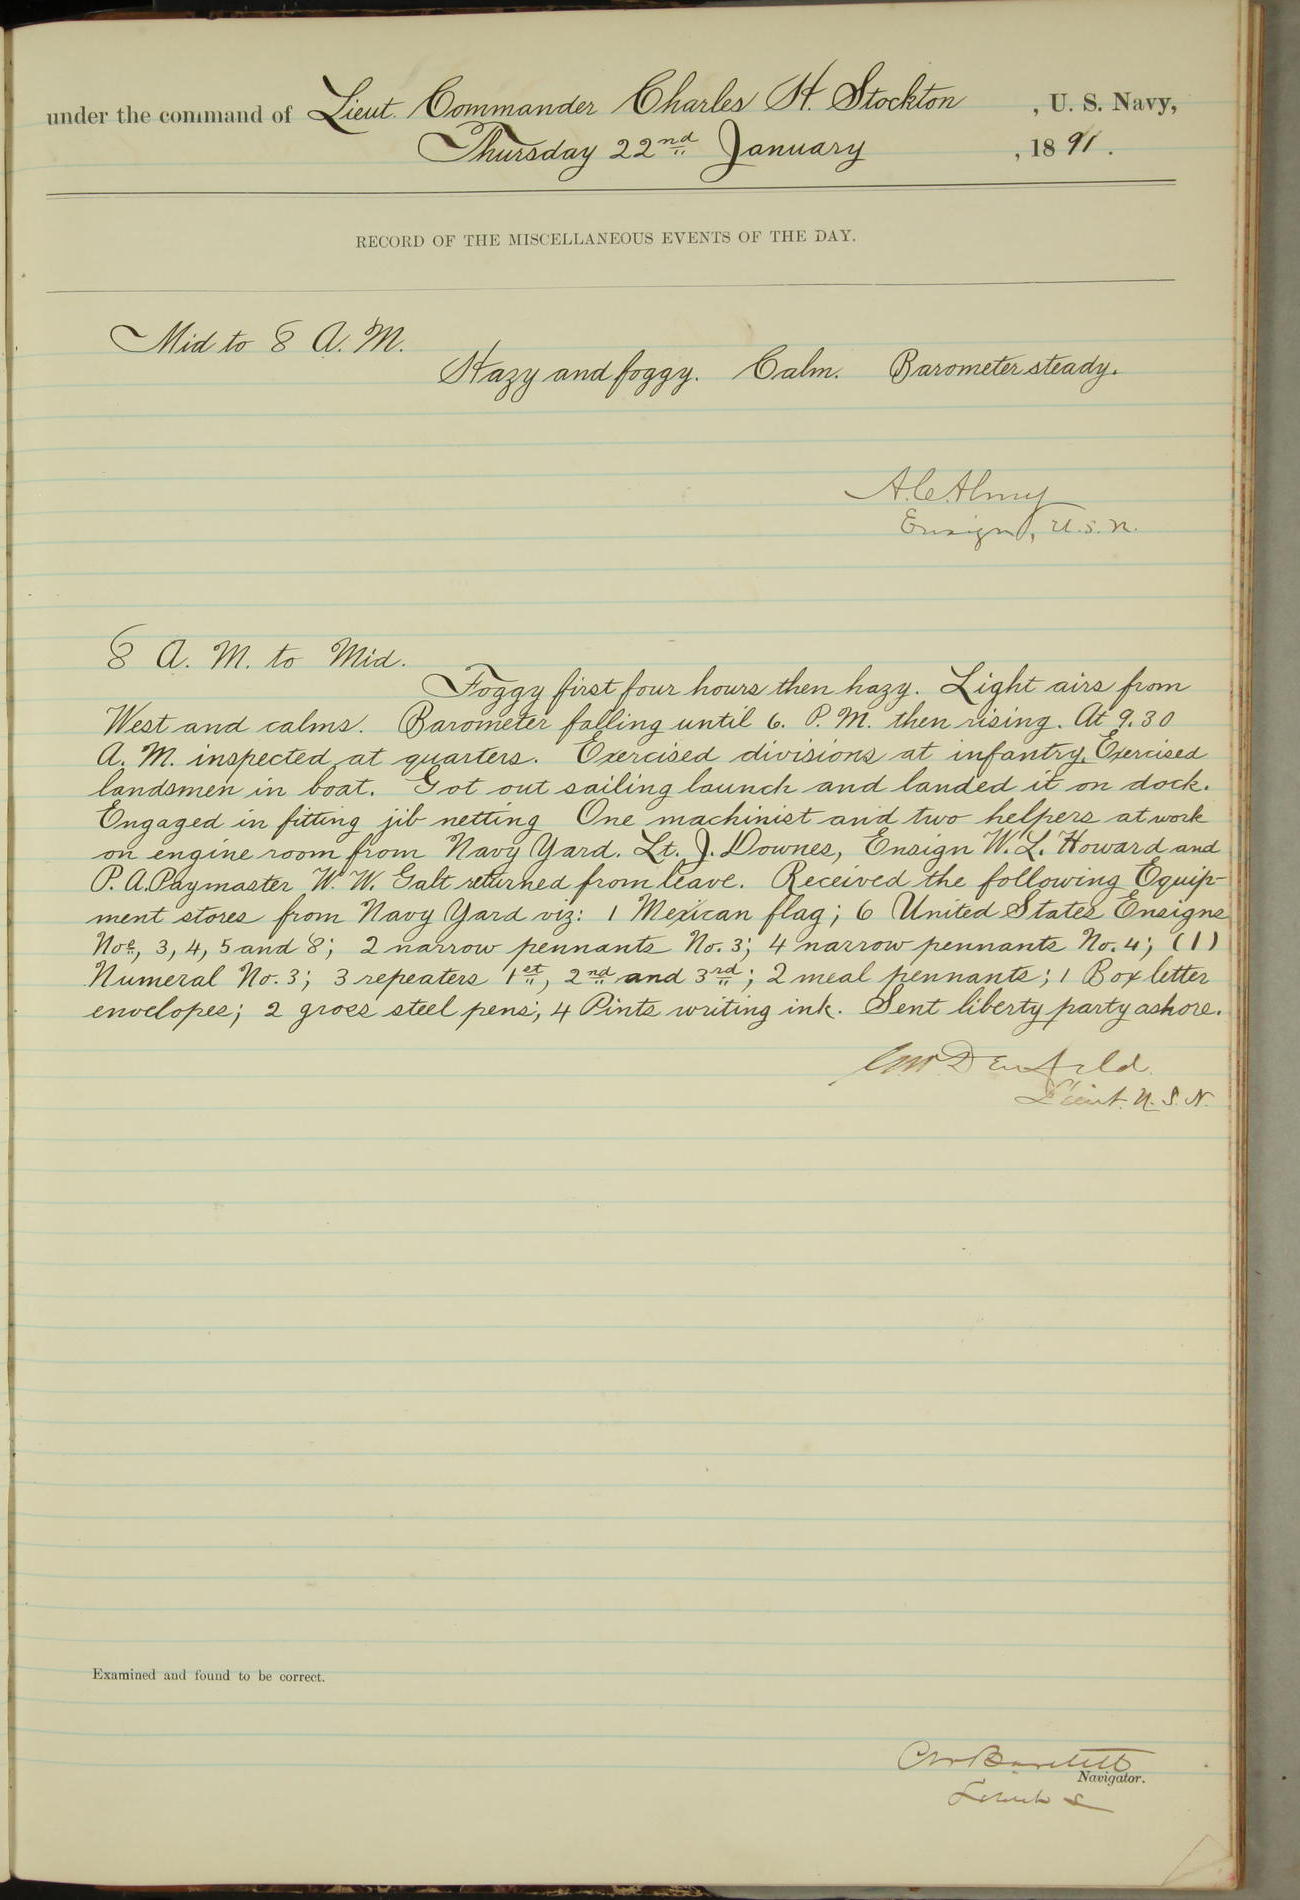 under the command of Lieut. Commander Charles H. Stockton, U. S. Navy,
Thursday 22nd January, 1891.
RECORD OF THE MISCELLANEOUS EVENTS OF THE DAY.
Mid to 8 A. M.
Hazy and foggy. Calm. Barometer steady.
A. C. Almy
Ensign, U.S.N.
8 A. M. to Mid.
Foggy first four hours then hazy. Light airs from
West and calms. Barometer falling until 6. P. M. then rising. At 9.30
A. M. inspected at quarters. Exercised divisions at infantry. Exercised
landsmen in boat. Got out sailing launch and landed it on dock.
Engaged in fitting jib netting One machinist and two helpers at work
on engine room from Navy Yard. Lt. J. Downes, Ensign W. L. Howard and
P. A. Paymaster W. W. Galt returned from leave. Received the following Equip-
ment stores from Navy Yard viz: 1 Mexican flag; 6 United States Ensigns
Nos, 3, 4, 5 and 8; 2 narrow pennants No. 3; 4 narrow pennants No. 4; (1)
Numeral No. 3; 3 repeaters 1st, 2nd and 3rd; 2 meal pennants; 1 Box letter
envelopes; 2 gross steel pens; 4 Pints writing ink. Sent liberty party ashore.
Denfeld.
Lieut. U. S. N.
Examined and found to be correct.
Bartlett
Navigator.